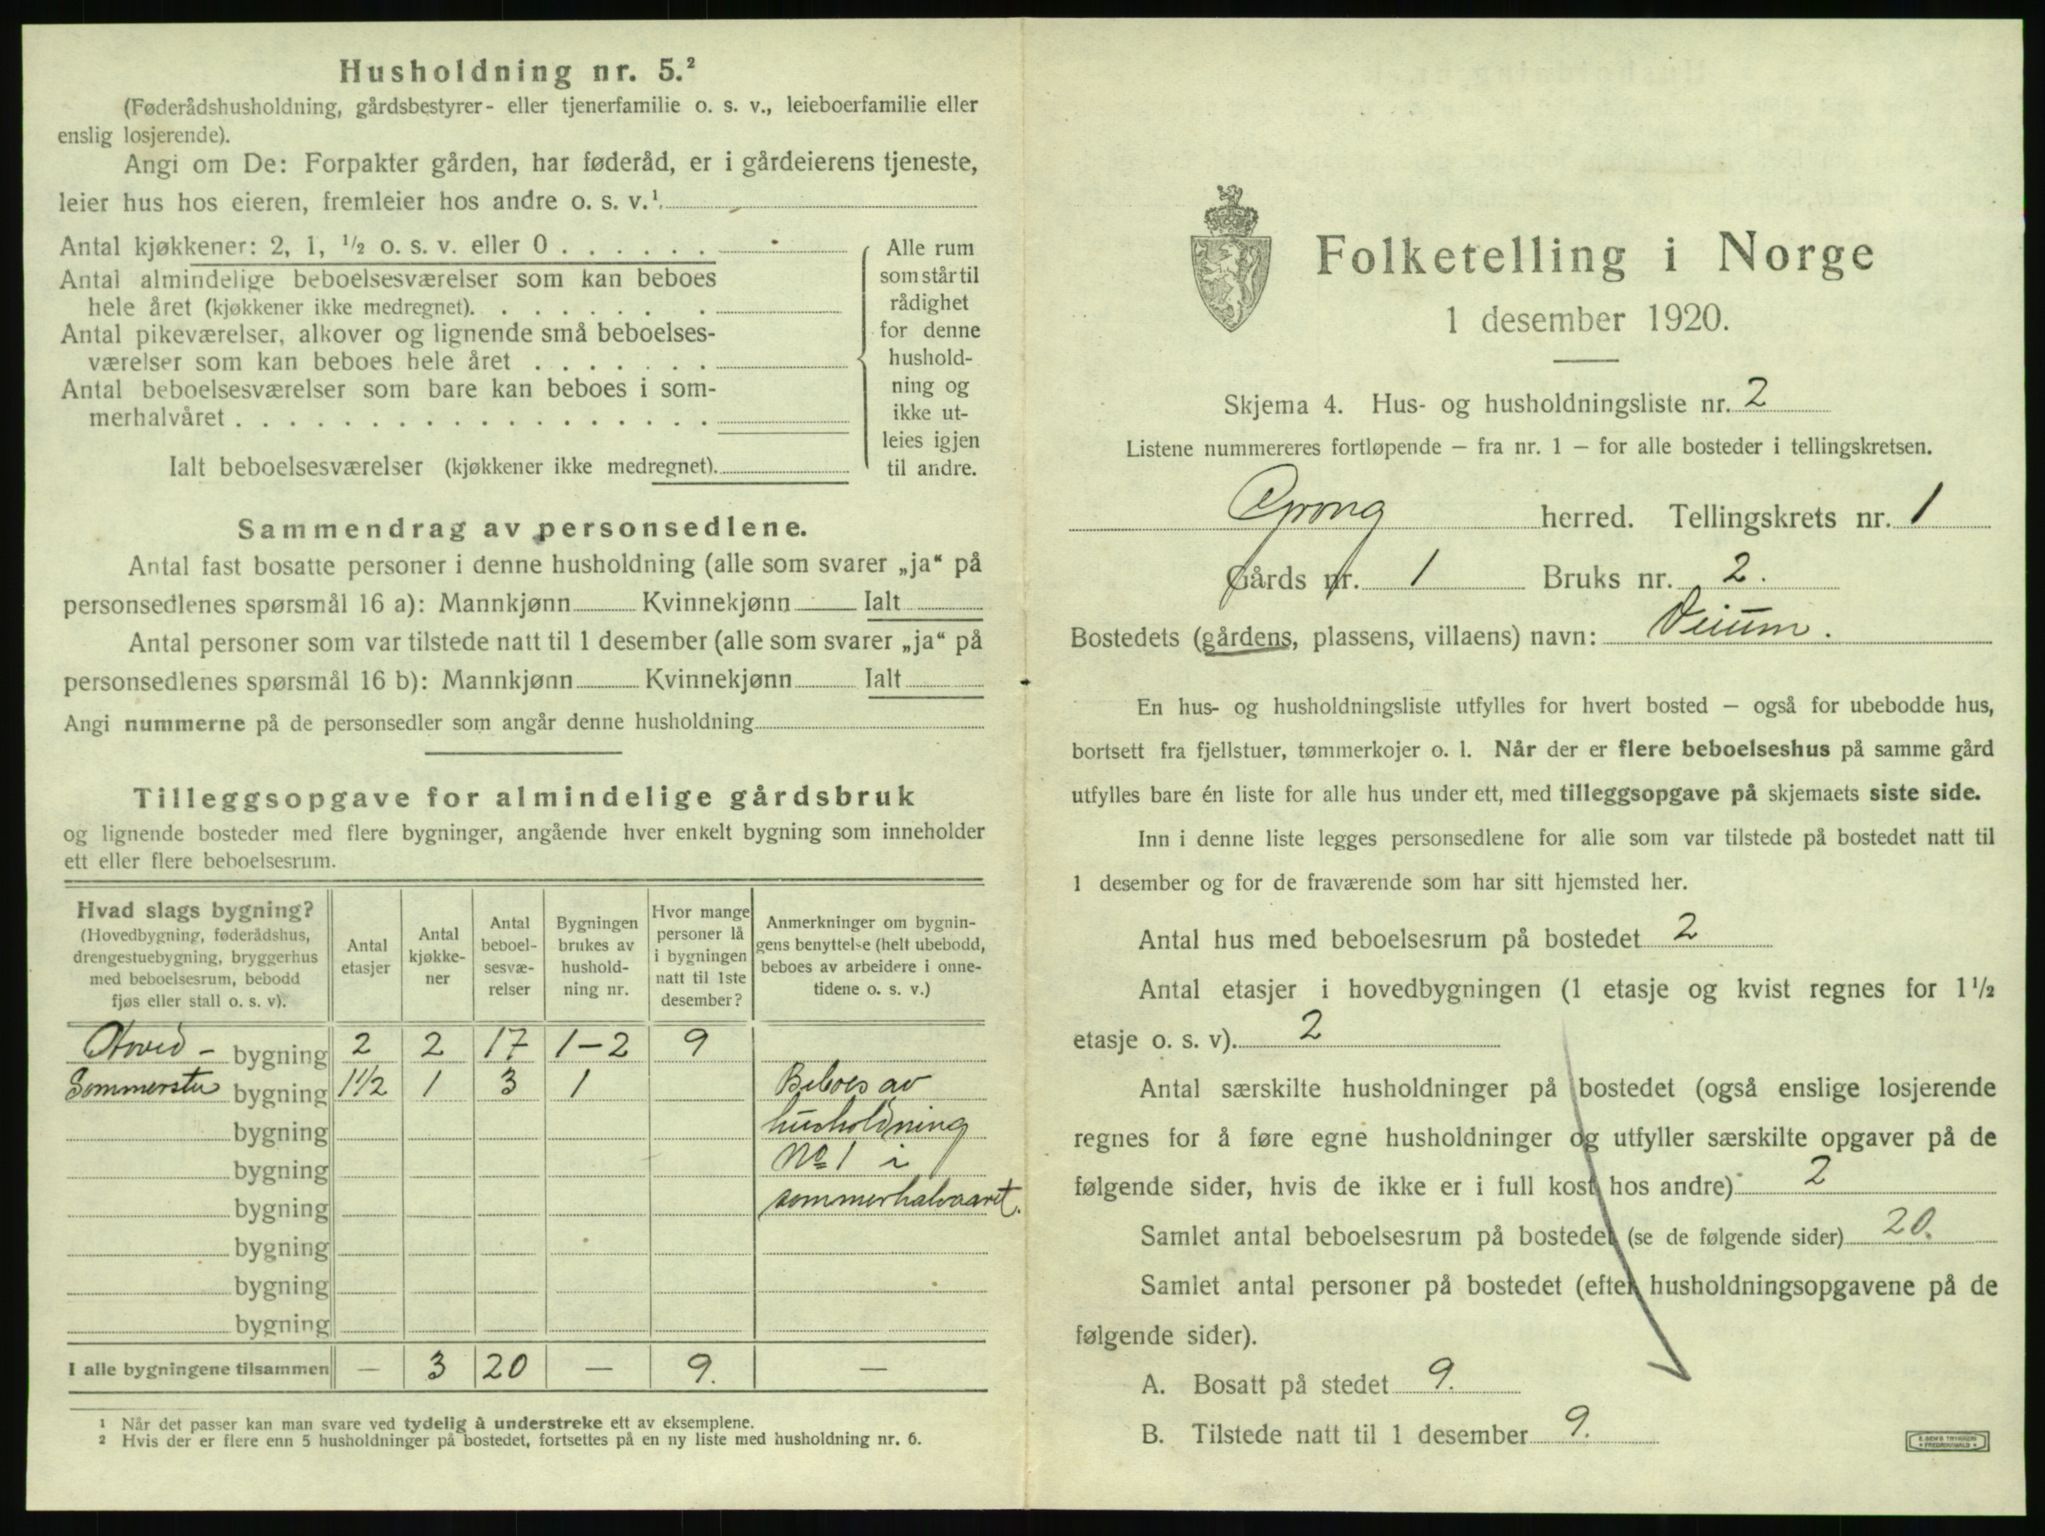 Husholdning nr. 5.²
(Føderådshusholdning, gårdsbestyrer- eller tjenerfamilie o. s. v., leieboerfamilie eller
enslig losjerende).
Angi om De: Forpakter gården, har føderåd, er i gårdeierens tjeneste,
leier hus hos eieren, fremleier hos andre o. s. v.¹
Antal kjøkkener: 2, 1, ½ o. s. v. eller 0 . . . . . .
Antal almindelige beboelsesværelser som kan beboes
hele året (kjøkkener ikke medregnet). . . . . . . .
Antal pikeværelser, alkover og lignende små beboelses-
værelser som kan beboes hele året . . . . . . .
Antal beboelsesværelser som bare kan beboes i som-
merhalvåret . . . . . . . . . . . . . . . . . .
Ialt beboelsesværelser (kjøkkener ikke medregnet).
Alle rum
som står til
rådighet
for denne
hushold-
ning og
ikke ut-
leies igjen
til andre.
Sammendrag av personsedlene.
Antal fast bosatte personer i denne husholdning (alle som svarer „ja“ på
personsedlenes spørsmål 16 a): Mannkjønn Kvinnekjønn Ialt
Antal personer som var tilstede natt til 1 desember (alle som svarer „ja“ på
personsedlenes spørsmål 16 b): Mannkjønn Kvinnekjønn Ialt
Angi nummerne på de personsedler som angår denne husholdning
Tilleggsopgave for almindelige gårdsbruk
og lignende bosteder med flere bygninger, angående hver enkelt bygning som inneholder
ett eller flere beboelsesrum.
Hvad slags bygning?
(Hovedbygning, føderådshus,
drengestuebygning, bryggerhus
med beboelsesrum, bebodd
fjøs eller stall o. s. v).
Antal
etasjer
Antal
kjøkke-
ner
Antal
beboel-
sesvæ-
relser
Bygningen
brukes av
hushold-
ning nr.
Hvor mange
personer lå
i bygningen
natt til 1ste
desember?
Anmerkninger om bygnin-
gens benyttelse (helt ubebodd,
beboes av arbeidere i onne-
tidene o. s. v.)
Hoved- bygning 2 2 17 1-2 9
Sommerstu bygning 1½ 1 3 1 Beboes av
bygning husholdning
bygning No 1 i
bygning sommerhalvaaret.
bygning
bygning
bygning
I alle bygningene tilsammen — 3 20 — 9. —
¹ Når det passer kan man svare ved tydelig å understreke ett av eksemplene.
² Hvis der er flere enn 5 husholdninger på bostedet, fortsettes på en ny liste med husholdning nr. 6.
Folketelling i Norge
1 desember 1920.
Skjema 4. Hus- og husholdningsliste nr. 2
Listene nummereres fortløpende — fra nr. 1 — for alle bosteder i tellingskretsen.
Grong herred. Tellingskrets nr. 1
Gårds nr. 1 Bruks nr. 2.
Bostedets (gårdens, plassens, villaens) navn: Veium.
En hus- og husholdningsliste utfylles for hvert bosted — også for ubebodde hus,
bortsett fra fjellstuer, tømmerkojer o. l. Når der er flere beboelseshus på samme gård
utfylles bare én liste for alle hus under ett, med tilleggsopgave på skjemaets siste side.
Inn i denne liste legges personsedlene for alle som var tilstede på bostedet natt til
1 desember og for de fraværende som har sitt hjemsted her.
Antal hus med beboelsesrum på bostedet 2
Antal etasjer i hovedbygningen (1 etasje og kvist regnes for 1½
etasje o. s. v). 2
Antal særskilte husholdninger på bostedet (også enslige losjerende
regnes for å føre egne husholdninger og utfyller særskilte opgaver på de
følgende sider, hvis de ikke er i full kost hos andre) 2
Samlet antal beboelsesrum på bostedet (se de følgende sider) 20.
Samlet antal personer på bostedet (efter husholdningsopgavene på de
følgende sider).
A. Bosatt på stedet 9.
B. Tilstede natt til 1 desember 9.